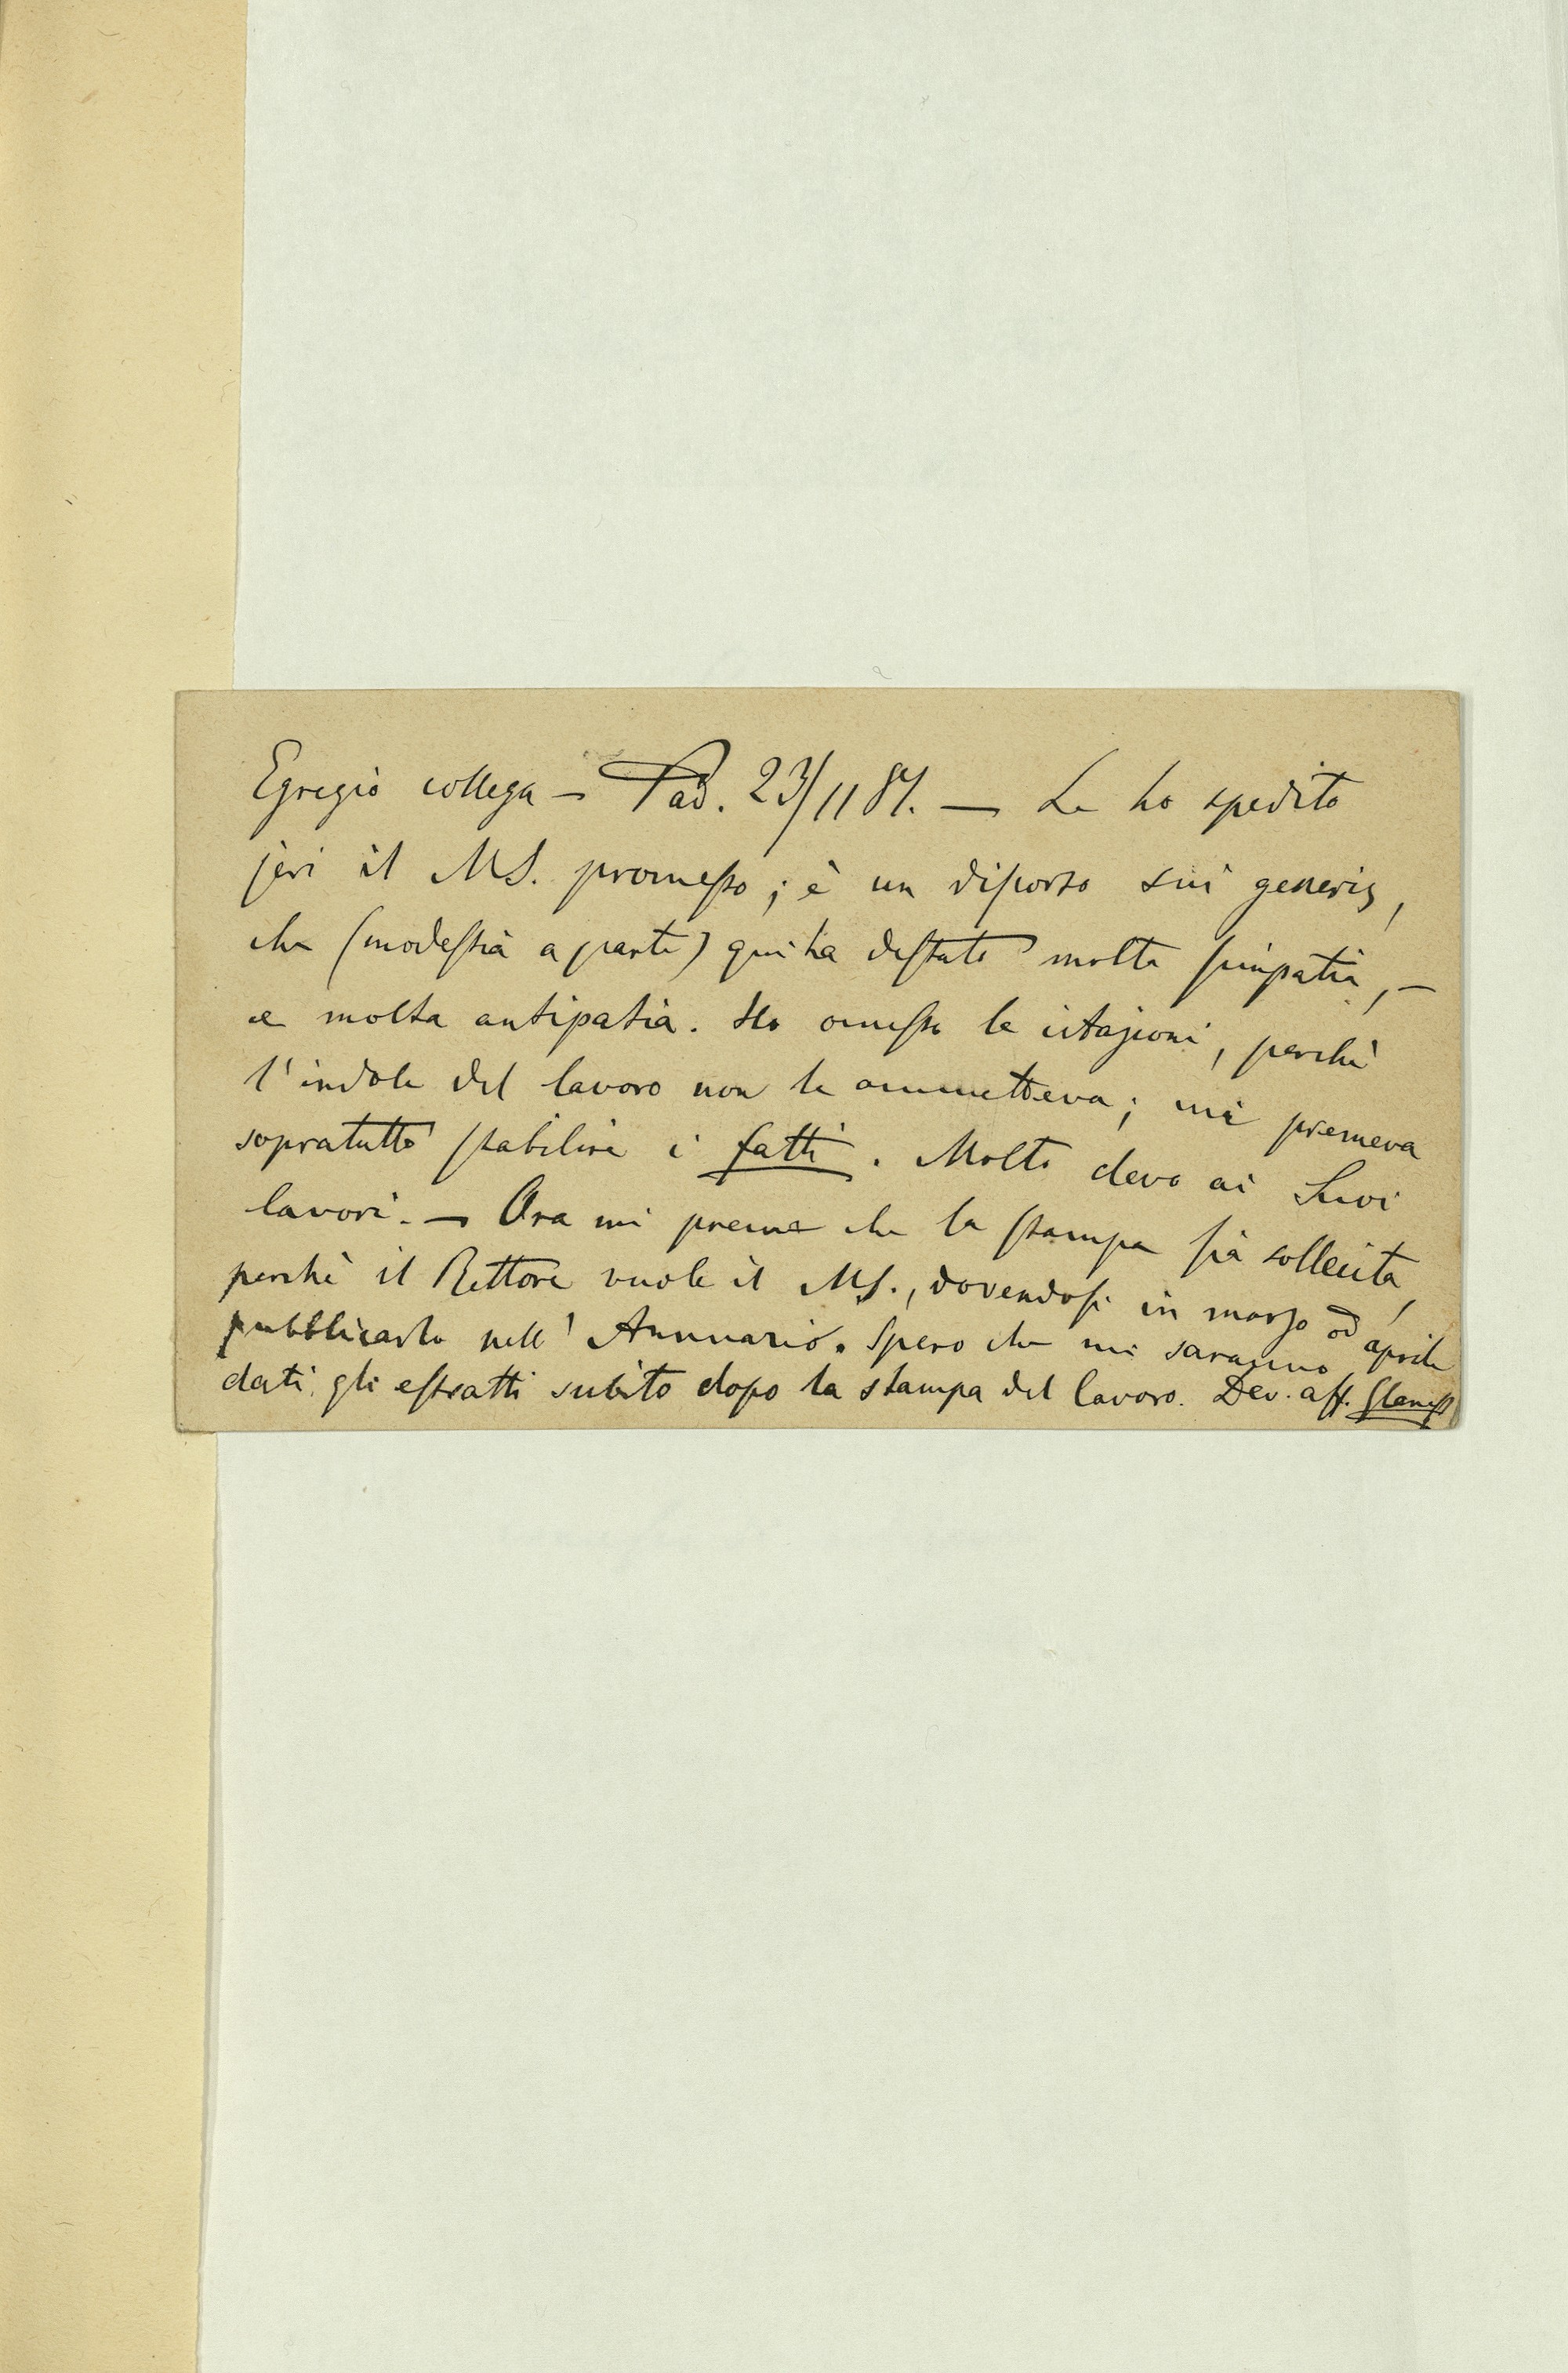 Egregio collega — Pad. 23/11 87. — Le ho spedito
jeri il MS. promesso; è un discorso sui generis,
che (modestia a parte) qui ha destato molta simpatia, —
e molta antipatia. Ho omesso le citazioni, perchè
l'indole del lavoro non le ammetteva; mi premeva
sopratutto stabilire i fatti. Molto devo ai Suoi
lavori. — Ora mi preme che la stampa sia sollecita,
perchè il Rettore vuole il MS., dovendosi in marzo od aprile
pubblicarlo nell' Annuario. Spero che mi saranno
dati gli estratti subito dopo la stampa del lavoro. Dev. aff.